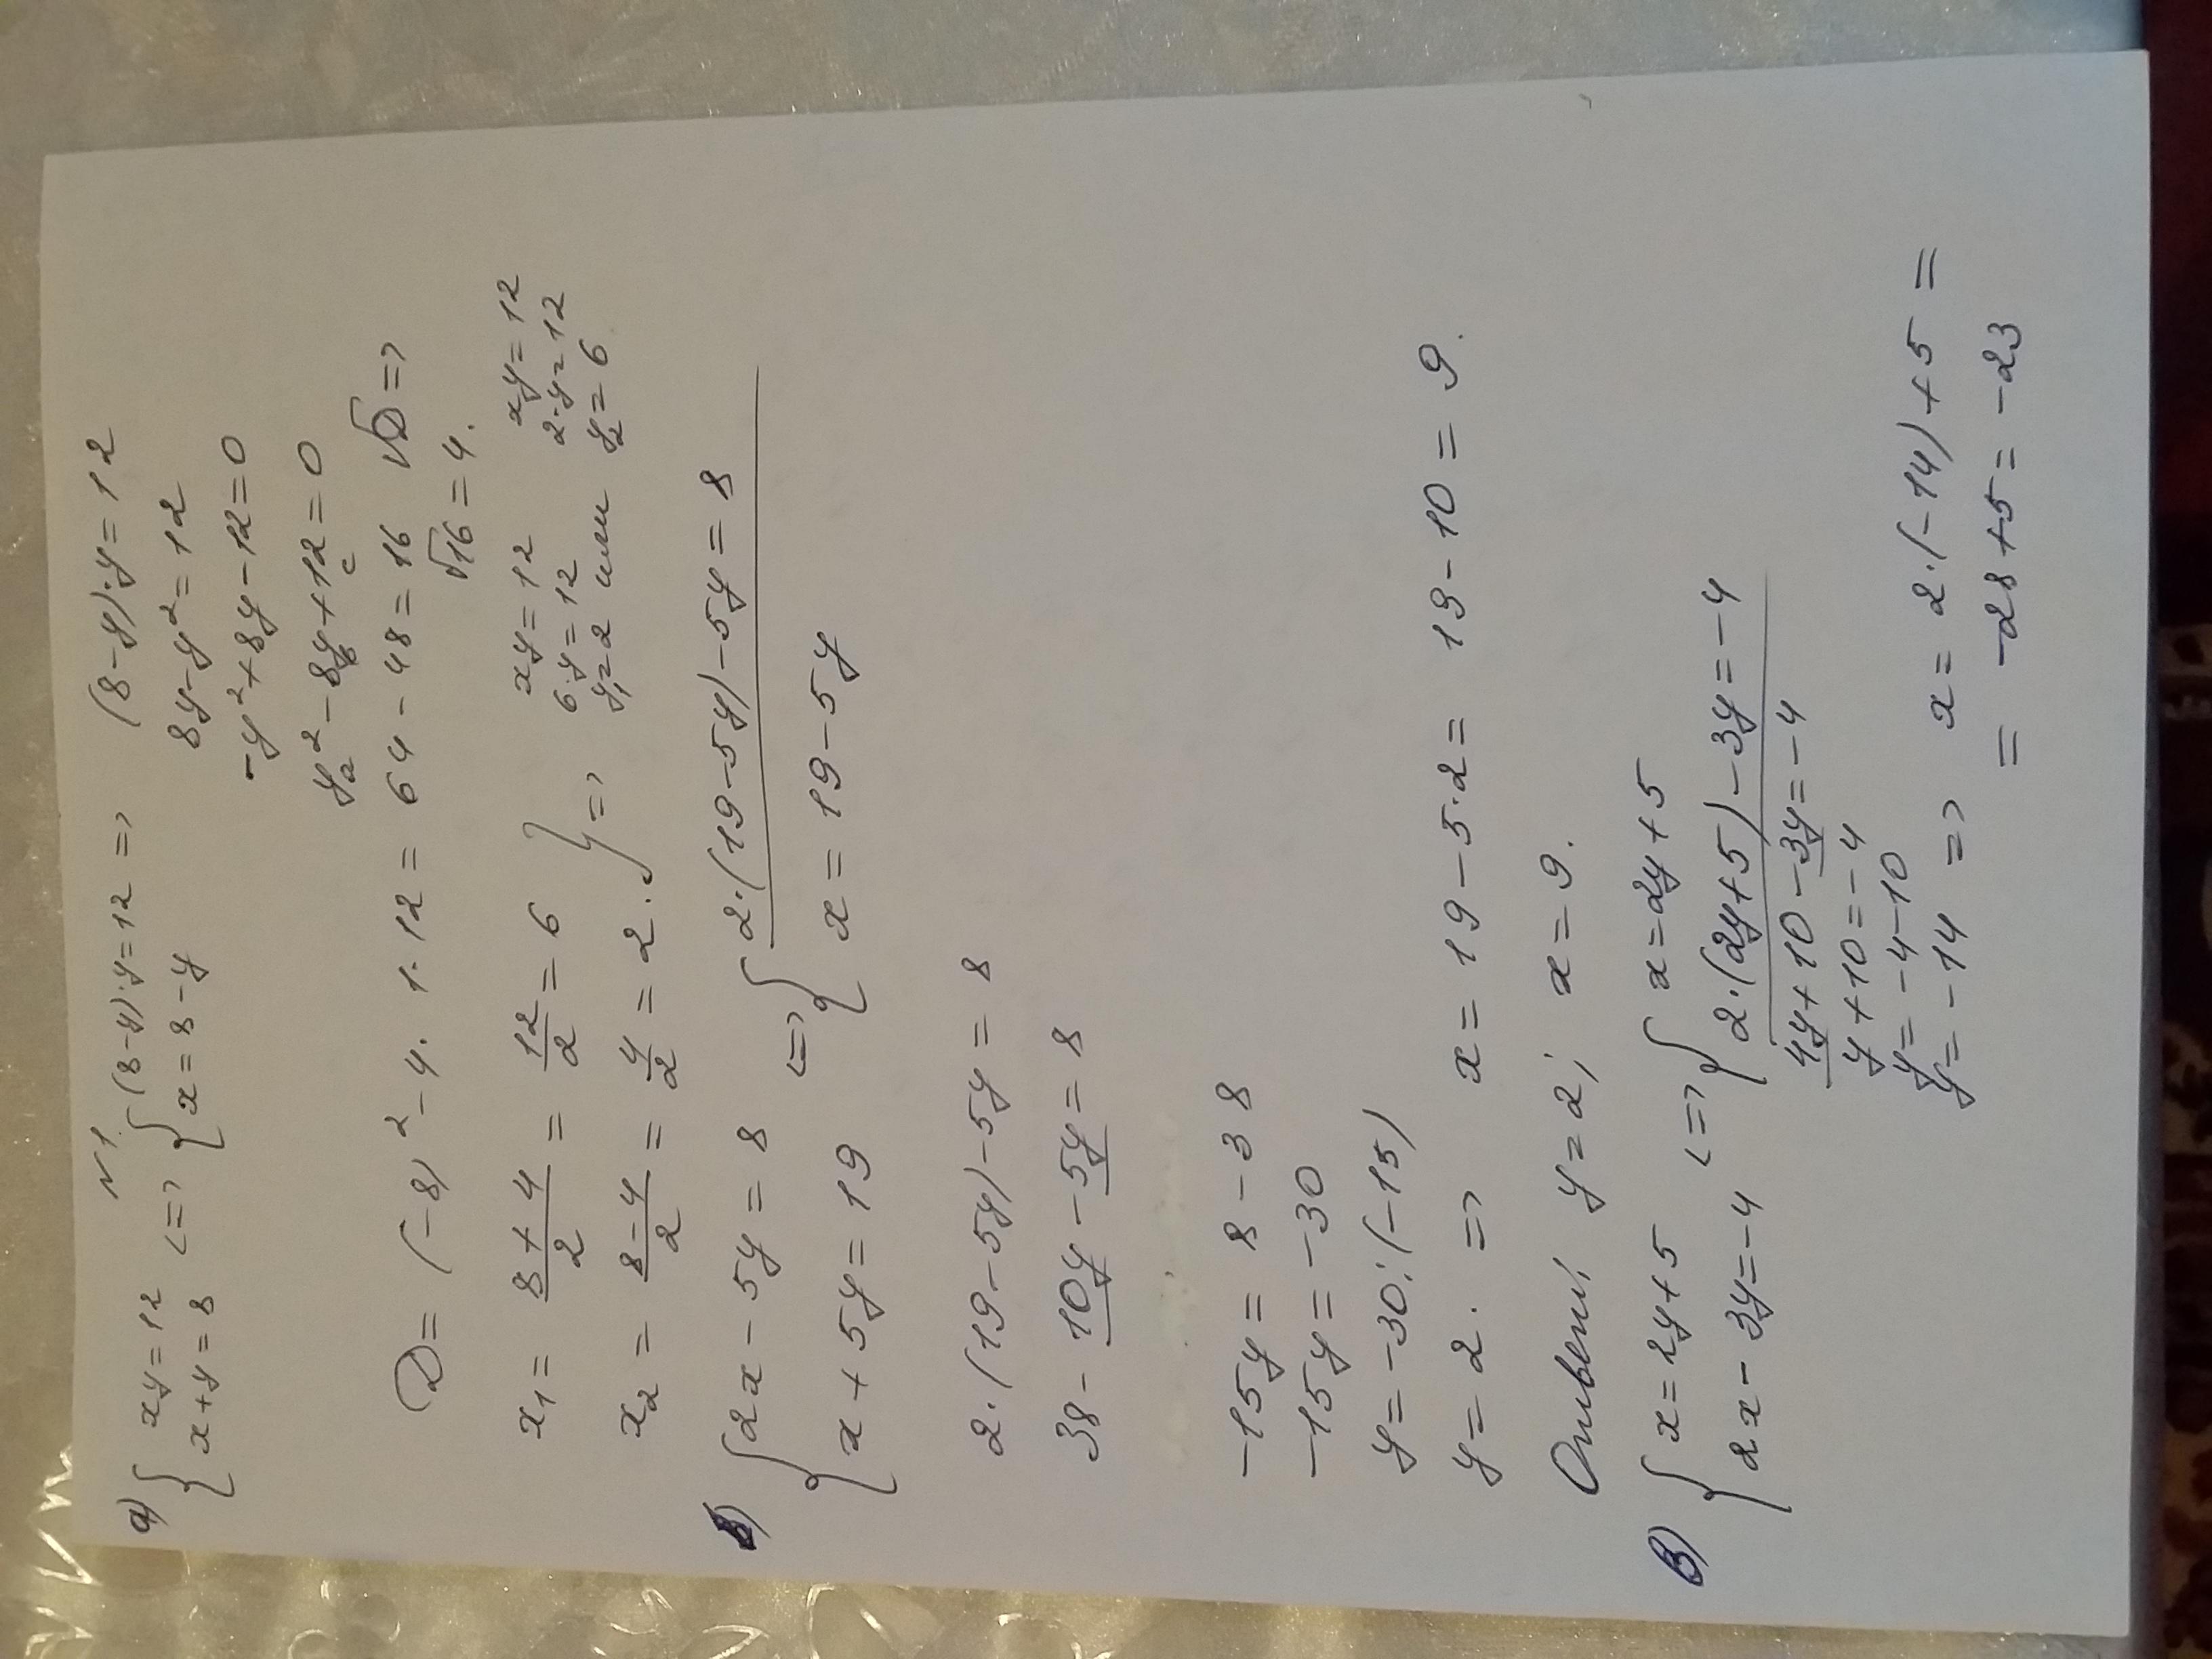 N1
а) { xy = 12 <=> { (8-y)·y = 12 => (8-y)·y = 12
x+y = 8 x = 8-y 8y - y² = 12
-y² + 8y - 12 = 0
y² - 8y + 12 = 0
a b c
D = (-8)² - 4·1·12 = 64 - 48 = 16 √D =>
√16 = 4.
x₁ = (8+4)/2 = 12/2 = 6 } => xy = 12 xy = 12
6·y = 12 2·y = 12
x₂ = (8-4)/2 = 4/2 = 2. y₁ = 2 или y₂ = 6
б) { 2x - 5y = 8 <=> { 2·(19-5y) - 5y = 8
x + 5y = 19 x = 19 - 5y
2·(19-5y) - 5y = 8
38 - 10y - 5y = 8
-15y = 8 - 38
-15y = -30
y = -30:(-15)
y = 2. => x = 19 - 5·2 = 19 - 10 = 9.
Ответ: y = 2; x = 9.
в) { x = 2y + 5 <=> { x = 2y + 5
2x - 3y = -4 2·(2y+5) - 3y = -4
4y + 10 - 3y = -4
y + 10 = -4
y = -4 - 10
y = -14 => x = 2·(-14) + 5 =
= -28 + 5 = -23